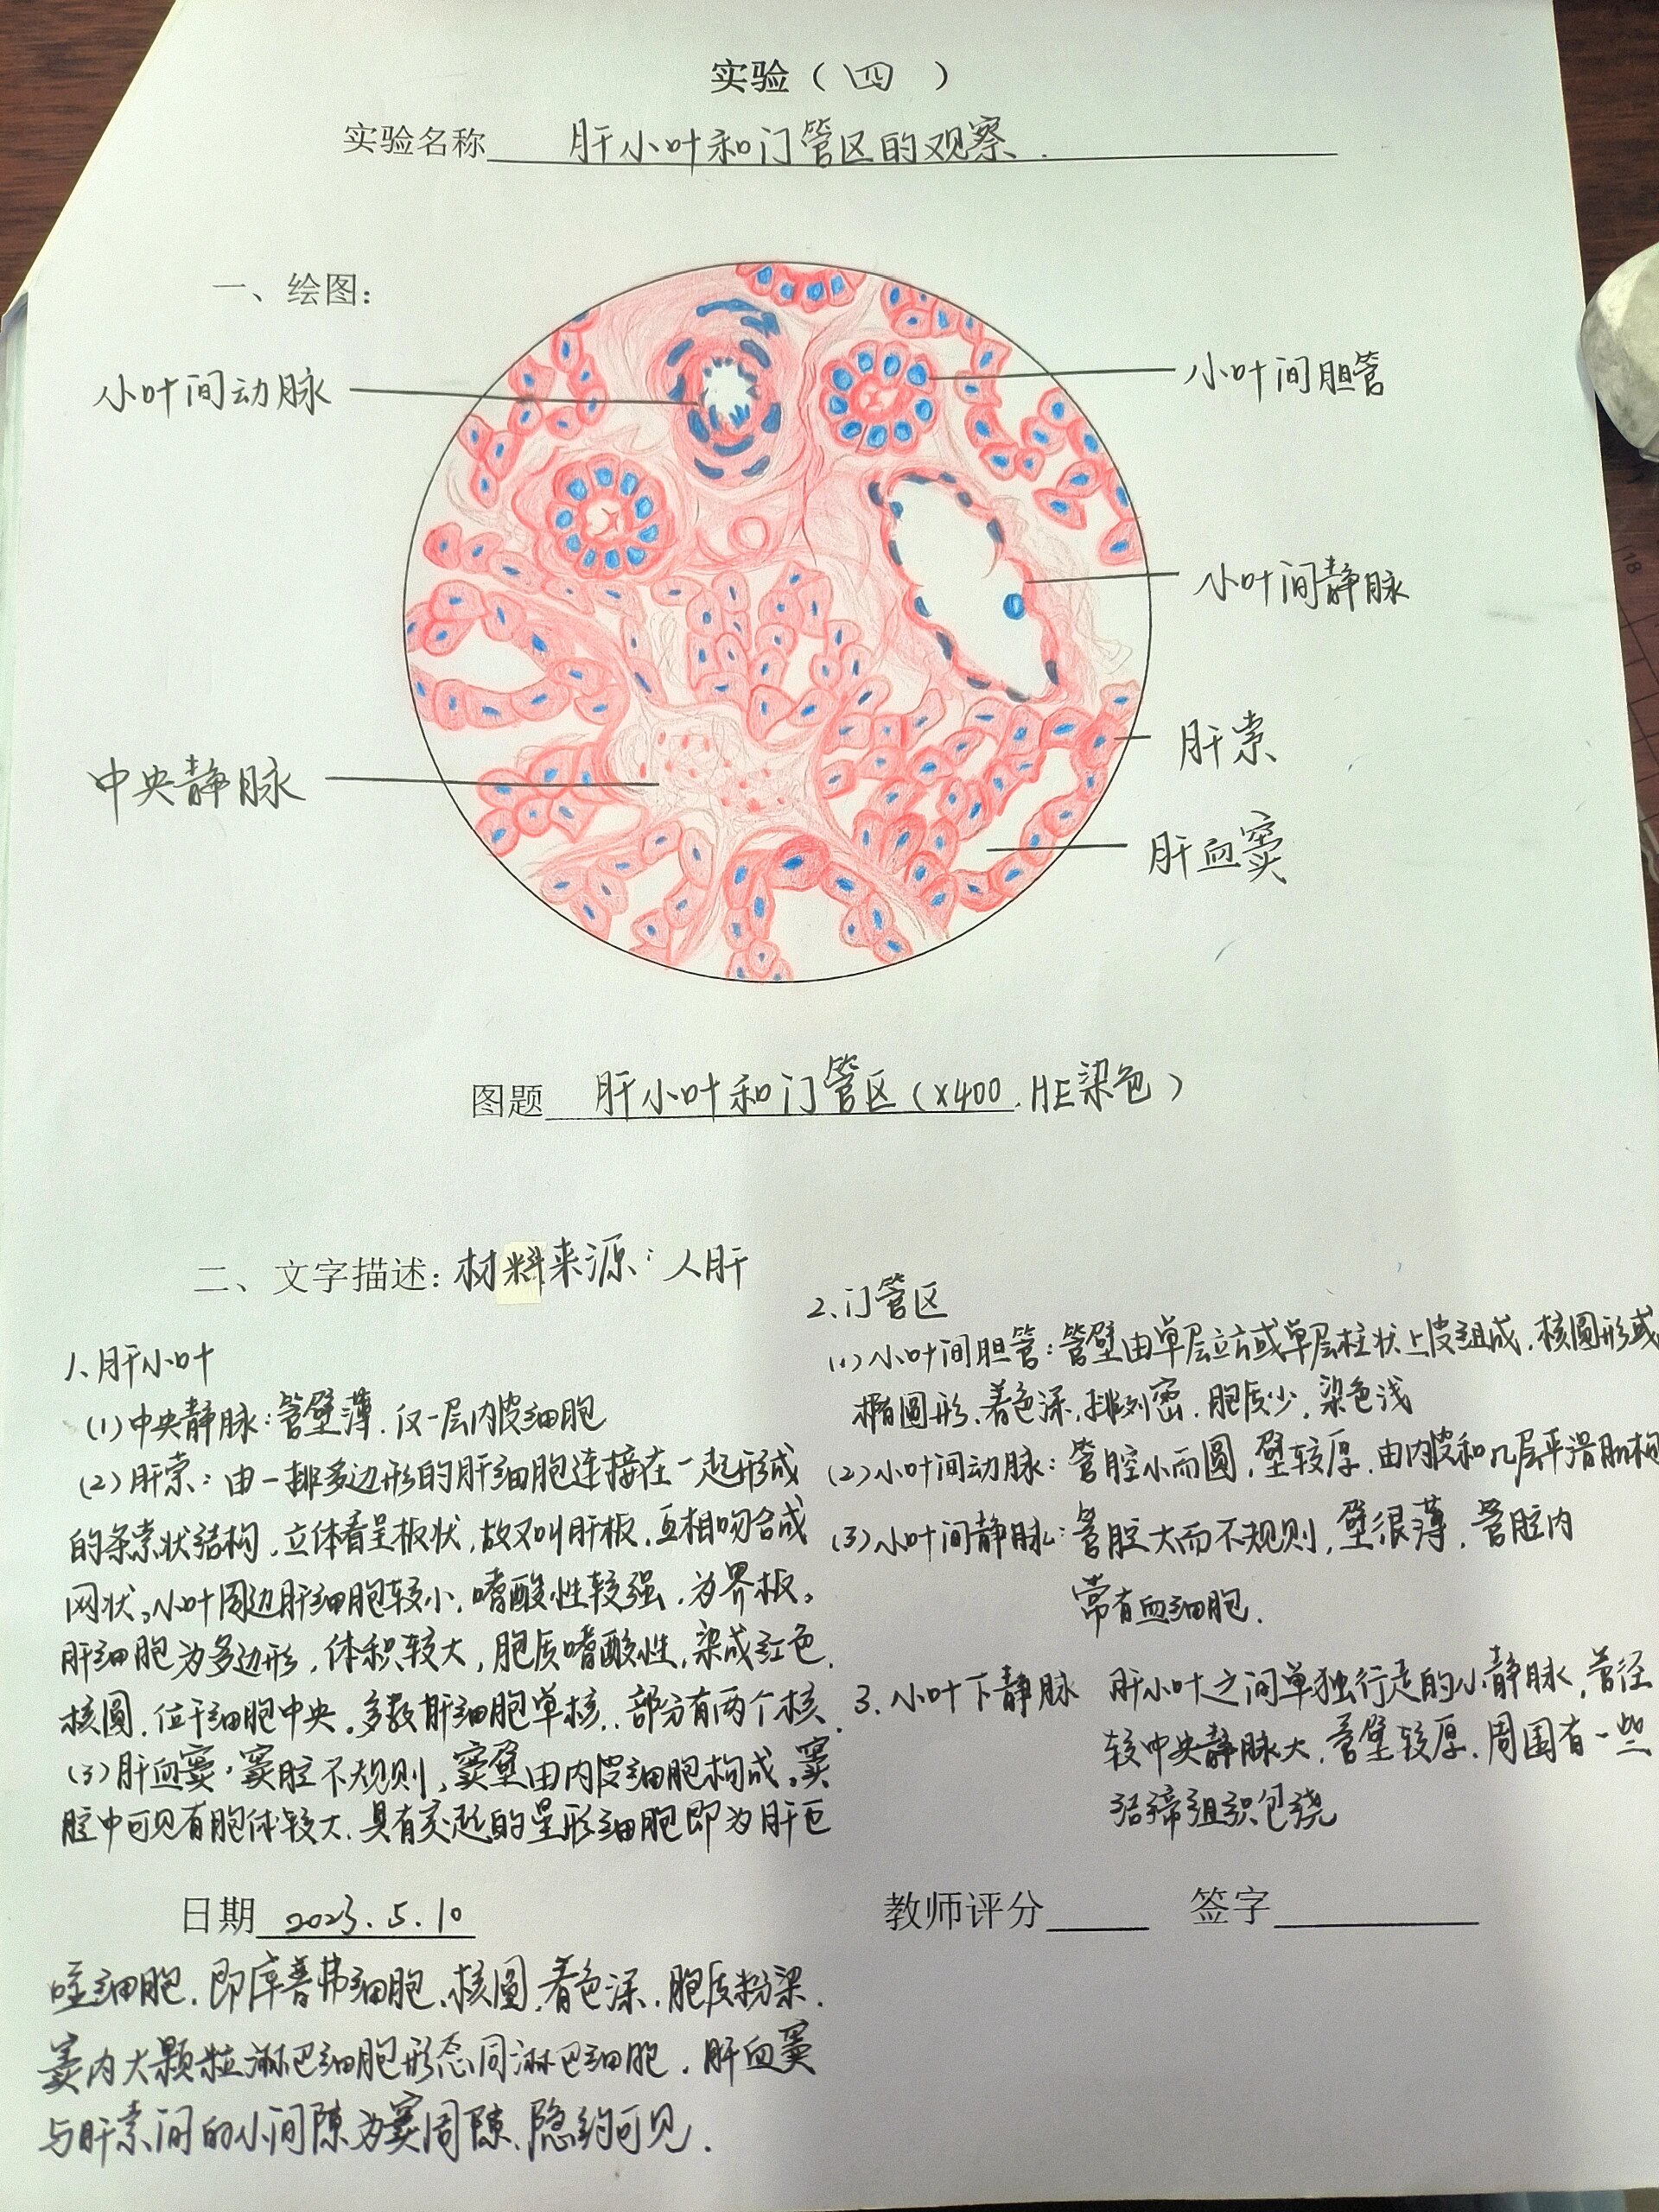 实验（四）
实验名称 肝小叶和门管区的观察.
一、绘图：
小叶间动脉
小叶间胆管
小叶间静脉
中央静脉
肝索
肝血窦
图题 肝小叶和门管区（×400.HE染色）
二、文字描述：材料来源：人肝
1、肝小叶
(1)中央静脉：管壁薄.仅一层内皮细胞
(2)肝索：由一排多边形的肝细胞连接在一起形成
的条索状结构,立体看呈板状,故又叫肝板,互相吻合成
网状。小叶周边肝细胞较小,嗜酸性较强,为界板。
肝细胞为多边形,体积较大,胞质嗜酸性,染成红色.
核圆.位于细胞中央。多数肝细胞单核.部分有两个核.
(3)肝血窦：窦腔不规则,窦壁由内皮细胞构成。窦
腔中可见有胞体较大.具有突起的星形细胞即为肝巨
2、门管区
(1)小叶间胆管：管壁由单层立方或单层柱状上皮组成.核圆形或
椭圆形、着色深,排列密.胞质少,染色浅
(2)小叶间动脉：管腔小而圆,壁较厚.由内皮和几层平滑肌构
(3)小叶间静脉：管腔大而不规则,壁很薄,管腔内
常有血细胞.
3、小叶下静脉 肝小叶之间单独行走的小静脉,管径
较中央静脉大,管壁较厚.周围有一些
结缔组织包绕
日期 2023.5.10
教师评分 签字
噬细胞.即库普弗细胞、核圆,着色深.胞质粉染.
窦内大颗粒淋巴细胞形态同淋巴细胞.肝血窦
与肝索间的小间隙为窦周隙、隐约可见.
18